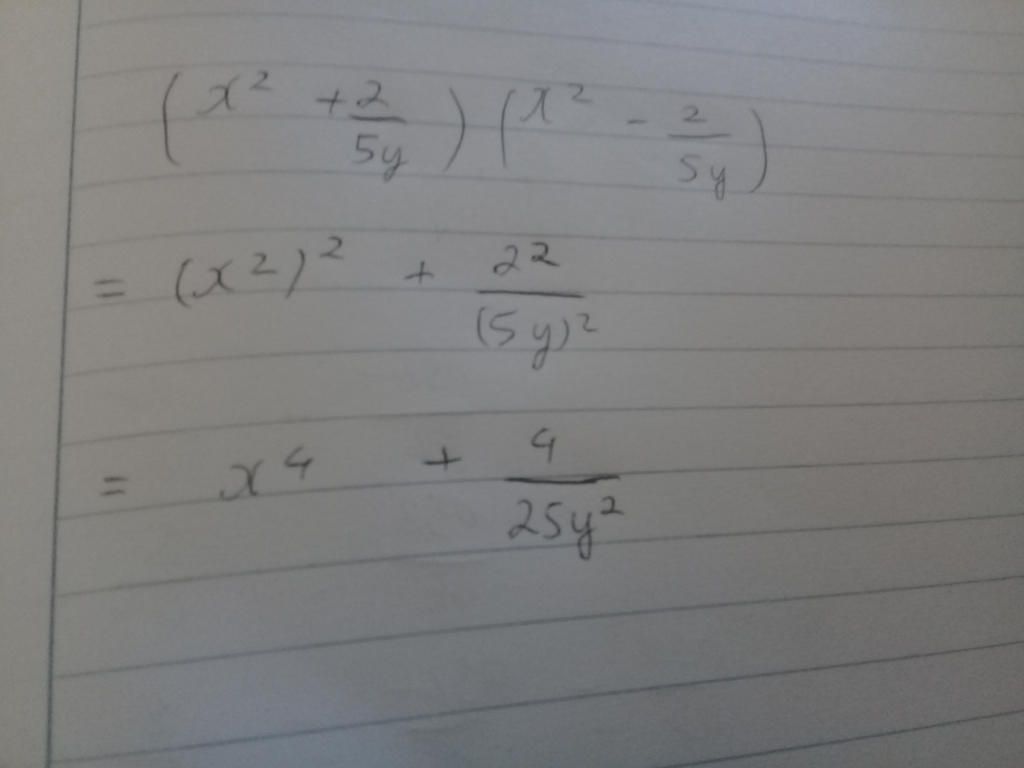 (x² + 2/5y) (x² - 2/5y)
= (x²)² + 2²/(5y)²
= x⁴ + 4/25y²